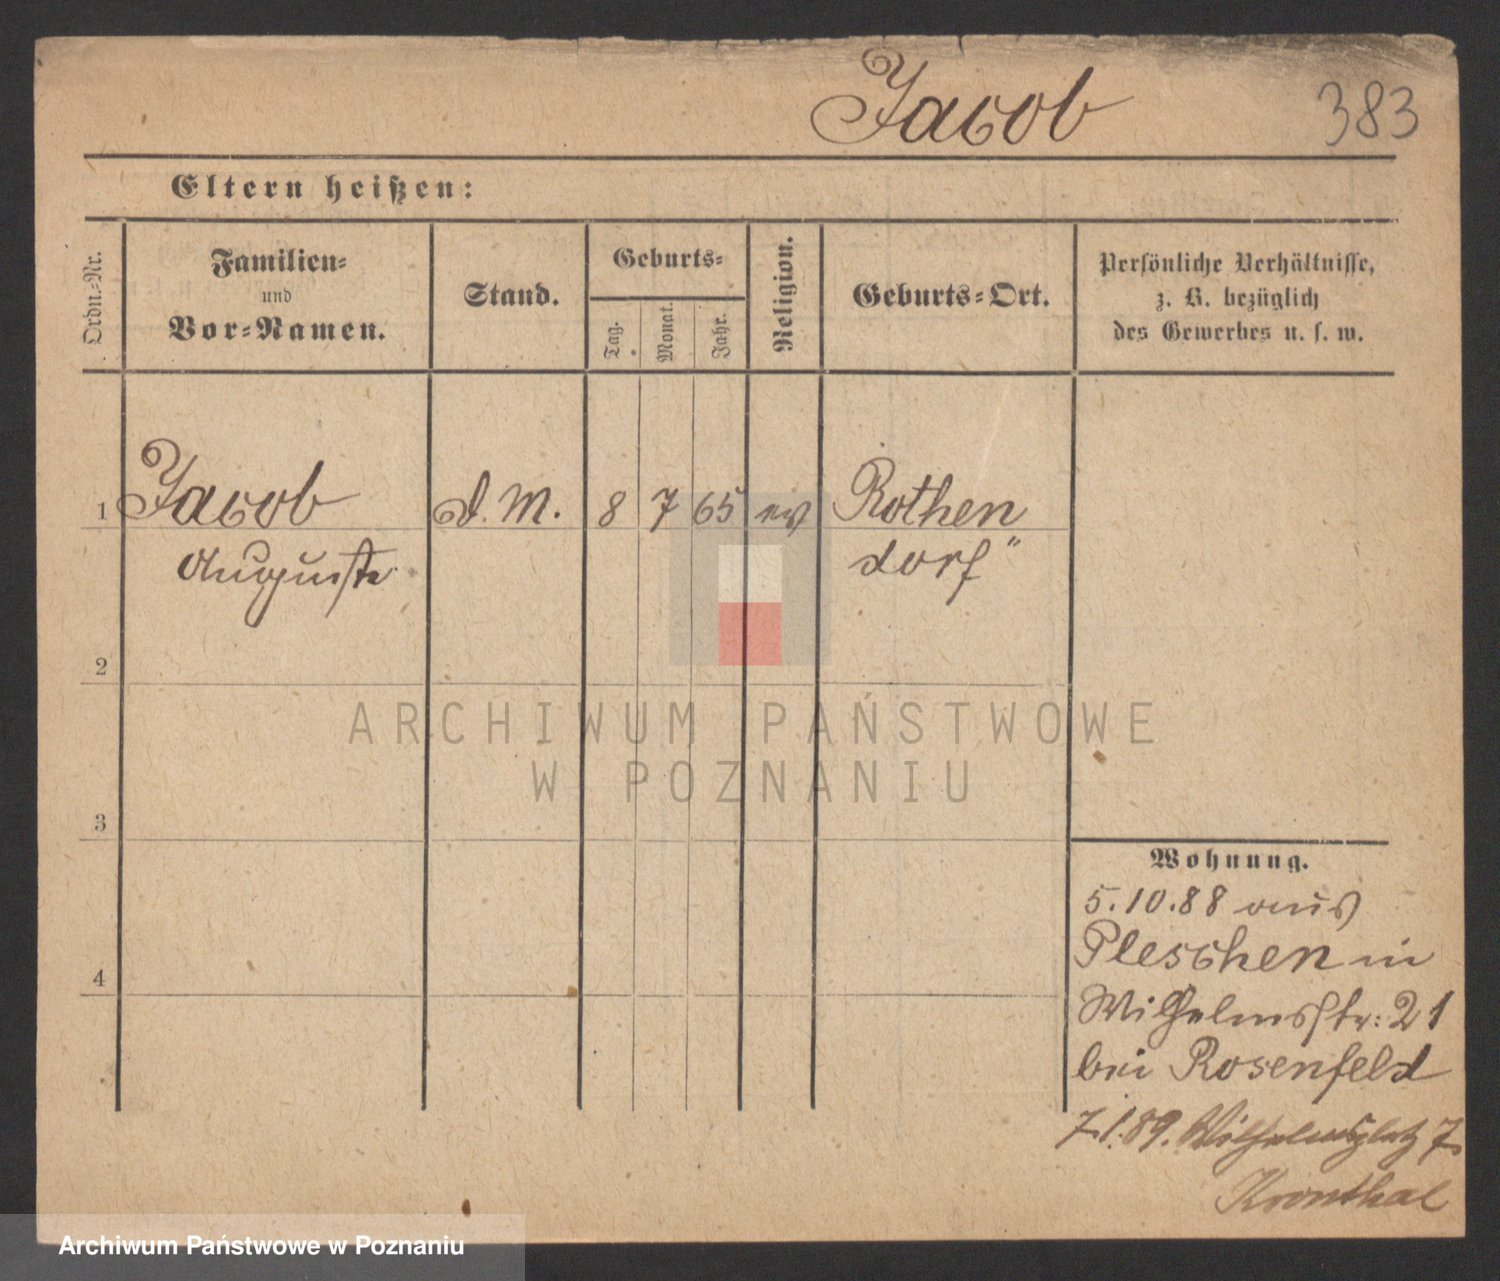 Jacob 383
Eltern heißen:
Ordn.-Nr.
Familien-
und
Vor-Namen.
Stand.
Geburts-
Tag.
Monat.
Jahr.
Religion.
Geburts-Ort.
Persönliche Verhältnisse,
z. B. bezüglich
des Gewerbes u. s. w.
1 Jacob d. M. 8 7 65 ev Rothen
Auguste dorf"
2
ARCHIWUM PAŃSTWOWE
W POZNANIU
3
Wohnung.
5.10.88 aus
Pleschen in
4
Wilhelmsstr: 21
bei Rosenfeld
7.1.89. Wilhelmsplatz 7
Kronthal
Archiwum Państwowe w Poznaniu